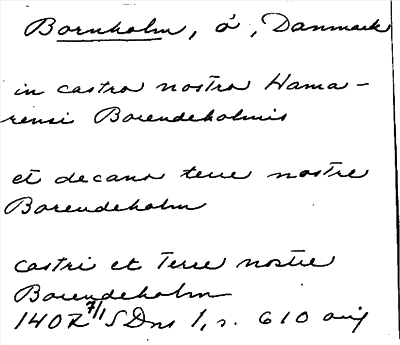 Bornholm, ö, Danmark
in castro nostro Hama-
rensi Borendeholmis
et decano terre nostre
Borendeholm
castri et terre nostre
Borendeholm
1407 7/1 SDns 1, s. 610 orig